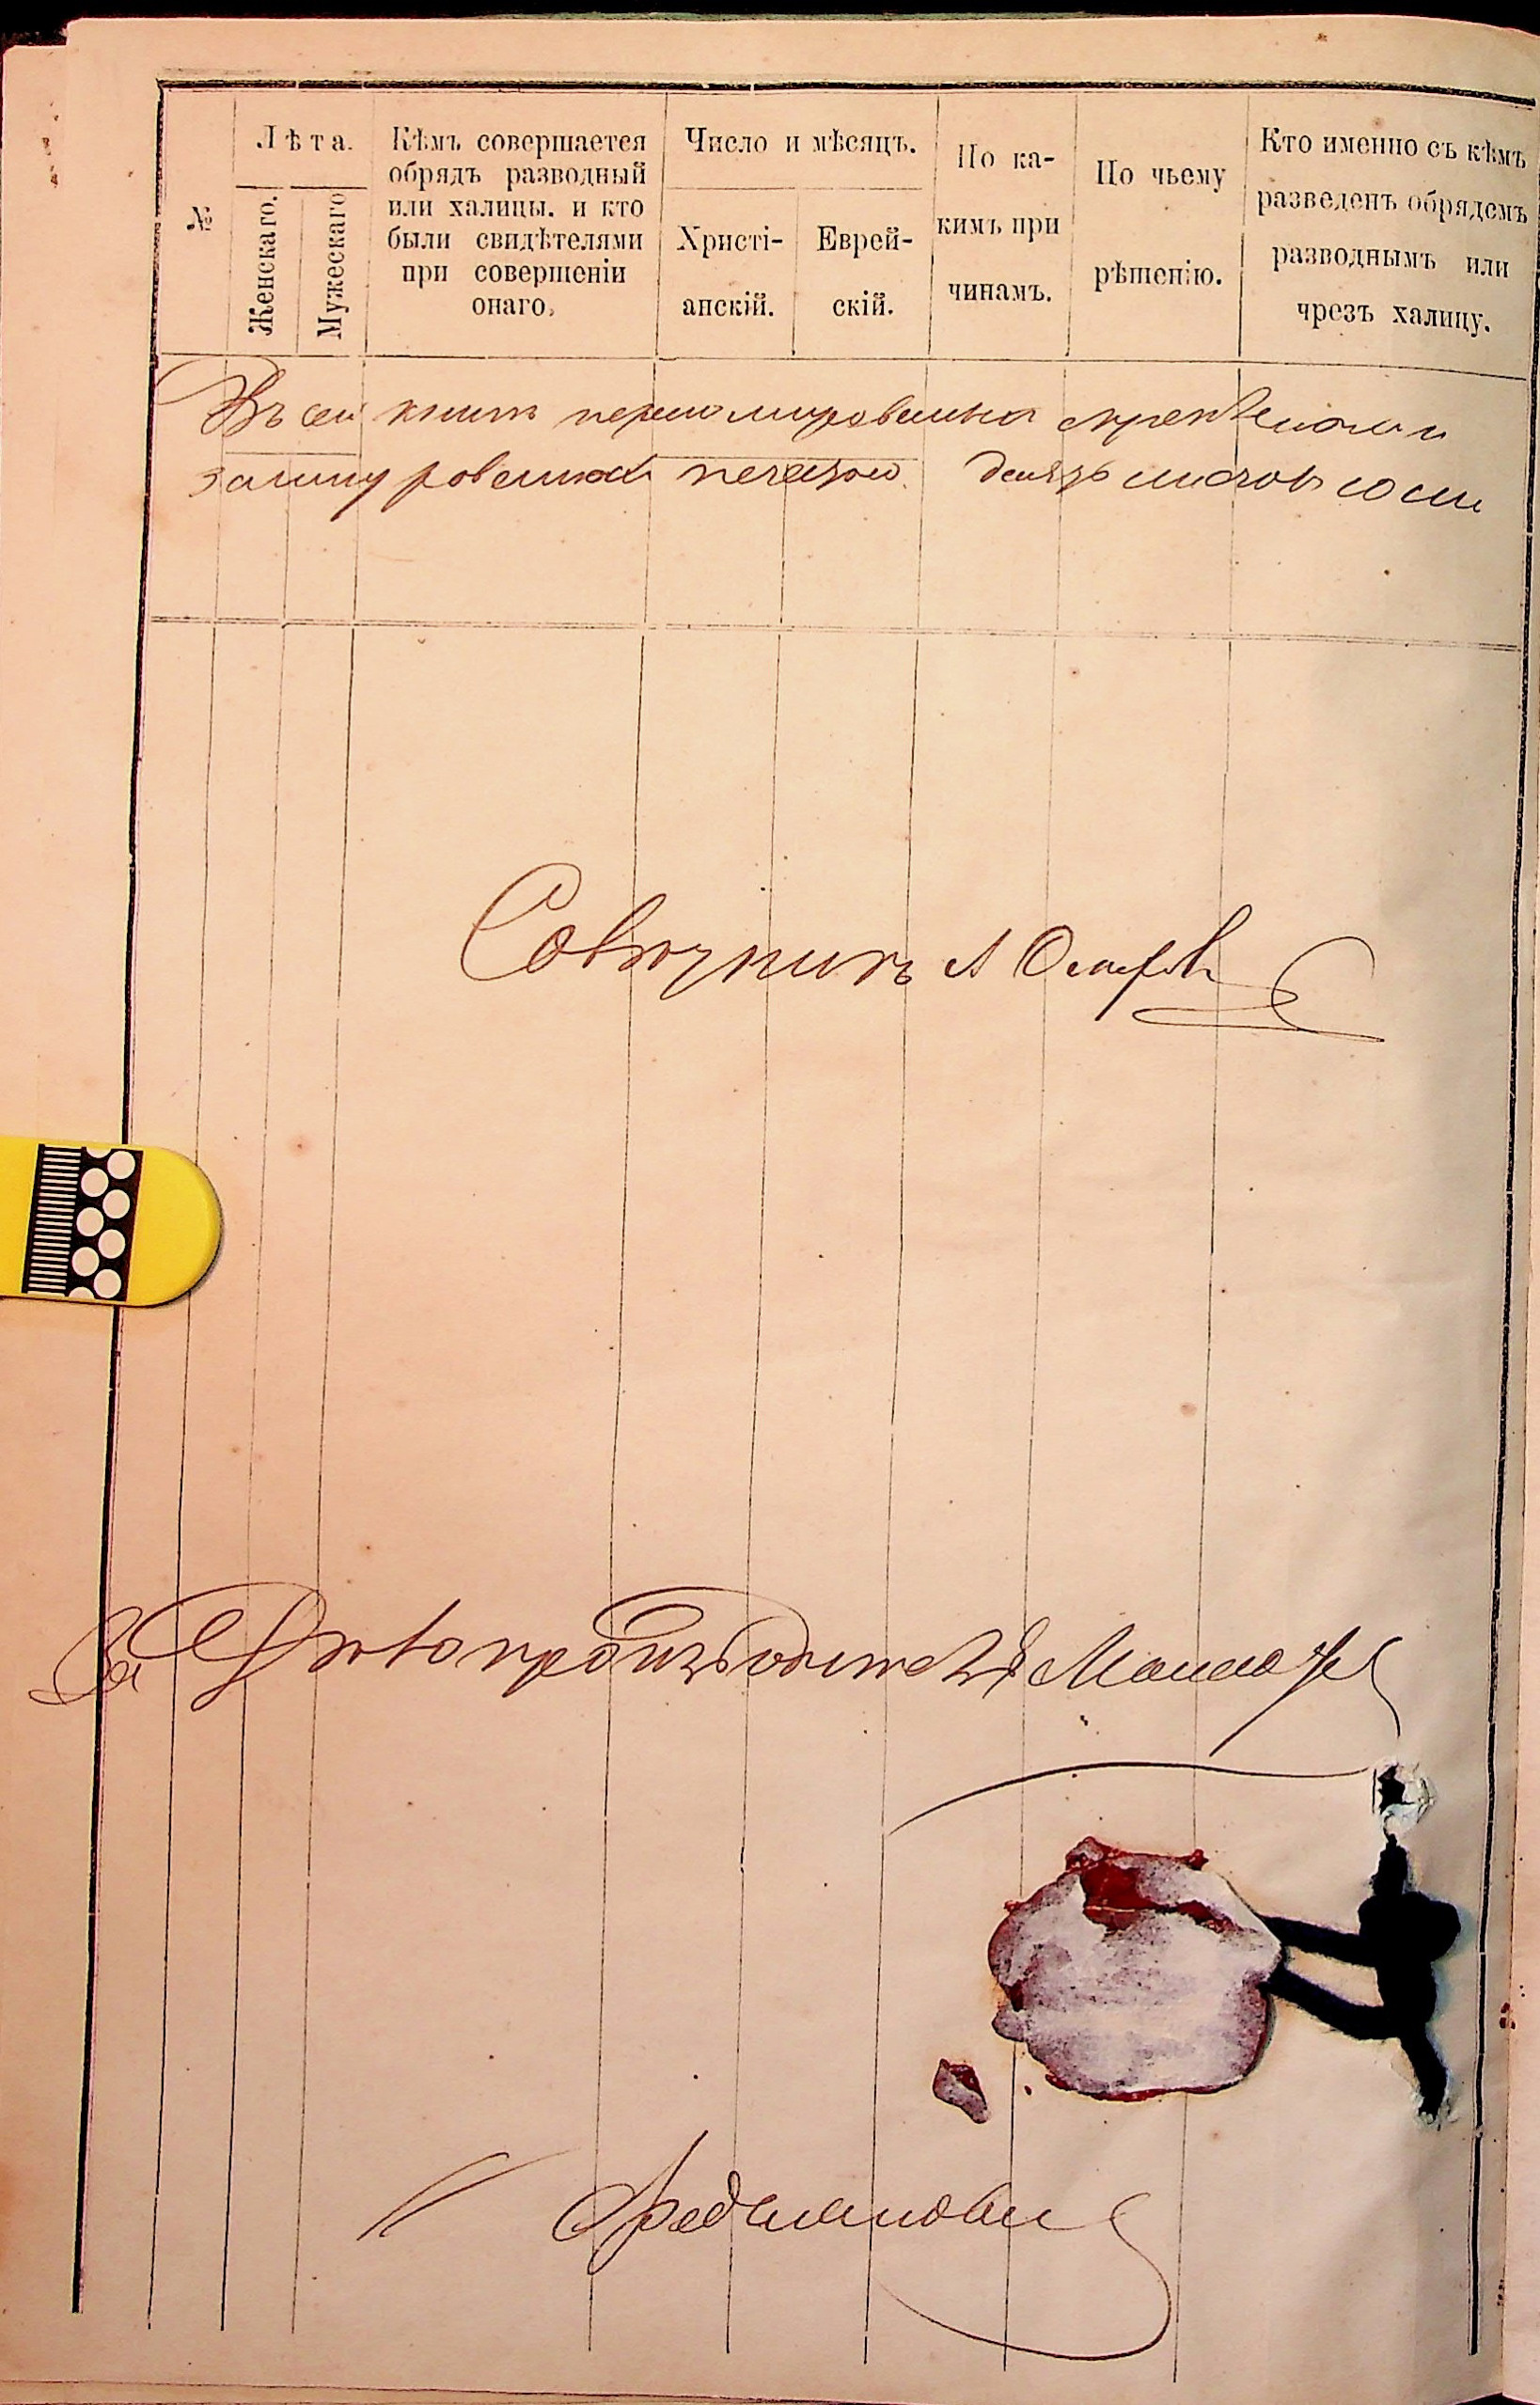 №
Лѣта.
Женскаго.
Мужескаго
Кѣмъ совершается
обрядъ разводный
или халицы. и кто
были свидѣтелями
при совершеніи
онаго.
Число и мѣсяцъ.
Христі-
анскій.
Еврей-
скій.
По ка-
кимъ при
чинамъ.
По чьему
рѣшенію.
Кто именно съ кѣмъ
разведенъ обрядомъ
разводнымъ или
чрезъ халицу.
Въ сей книге перенумерованной скрепленной и
зашнурованной печатью десять листов
Совѣтникъ А
За Дѣлопроизводителя